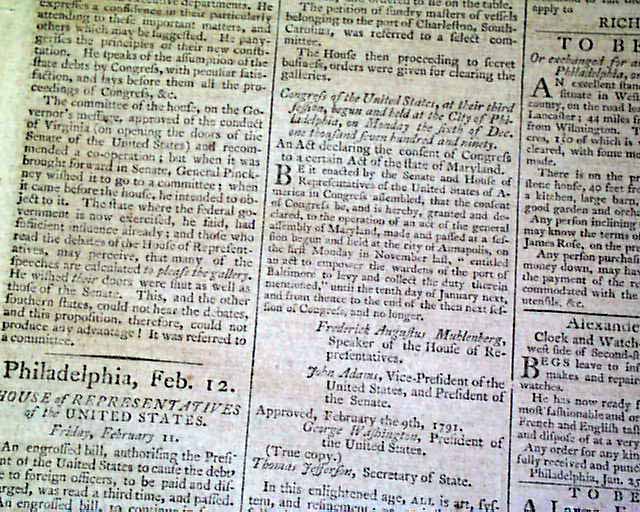 expresses a confidence in their particularly
attending to these important matters, and
others which may be suggested. He pane-
gerises the principles of their new consti-
tution. He speaks of the assumption of the
state debts by Congress, with peculiar satis-
faction, and lays before them all the pro-
ceedings of Congress, &c.
The committee of the house, on the Go-
vernor's message, approved of the conduct
of Virginia (on opening the doors of the
Senate of the United States) and recom-
mended a co-operation; but when it was
brought forward in Senate, General Pinck-
ney wished it to go to a committee; when
it came before the house, he intended to ob-
ject to it. The state where the federal go-
vernment is now exercised, he said, had
sufficient influence already; and those who
read the debates of the House of Represent-
atives, may perceive, that many of the
speeches are calculated to please the gallery.
He wished their doors were shut as well as
those of the Senate. This, and the other
southern states, could not hear the debates,
and this proposition, therefore, could not
produce any advantage! It was referred to
a committee.
Philadelphia, Feb. 12.
HOUSE of REPRESENTATIVES
of the UNITED STATES.
Friday, February 11.
An engrossed bill, authorising the Presi-
nt of the United States to cause the debt
e to foreign officers, to be paid and dis-
rged, was read a third time, and passed.
An engrossed bill, to continue in
on the table.
The petition of sundry masters of vessels
belonging to the port of Charleston, South-
Carolina, was referred to a select com-
mittee.
The House then proceeding to secret
business, orders were given for clearing the
galleries.
Congress of the United States, at their third
session, begun and held at the City of Phi-
ladelphia, on Monday the sixth of Dec.
one thousand seven hundred and ninety.
An Act declaring the consent of Congress
to a certain Act of the state of Maryland.
BE it enacted by the Senate and House of
Representatives of the United States of A-
merica in Congress assembled, that the consent
of Congress be, and is hereby, granted and de-
clared, to the operation of an act of the general
assembly of Maryland, made and passed at a ses-
sion begun and held at the city of Annapolis, on
the first Monday in November last, " entitled
an act to empower the wardens of the port of
Baltimore to levy and collect the duty therein
mentioned," until the tenth day of January next,
and from thence to the end of the then next ses-
sion of Congress, and no longer.
Frederick Augustus Muhlenberg,
Speaker of the House of Re-
presentatives.
John Adams, Vice-President of the
United States, and President of
the Senate.
Approved, February the 9th, 1791.
George Washington, President of
the United States.
(True copy.)
Thomas Jefferson, Secretary of State.
In this enlightened age, ALL is art, sys-
tem, and refinement;
apply to
RICH
TO BE
Or exchanged for an
Philadelphia,
A excellent
situate in
county, on the road
Lancaster; 44 miles
from Wilmington.
cres, 130 of which is
cleared, with some m
made.
There is on the pr
stone house, 40 feet
a kitchen, large barn,
good garden and orch
Any person inclining
may know the terms
James Ross, on the pr
Any person purchas
money down, may ha
the payment of the
commodated with tha
utensils, &c.
Alexande
Clock and Watch-
west side of Second-
BEGS leave to inf
makes and repai
watches.
He has now ready f
most fashionable and
French and English tas
and dispose of at a very
Any order for any kin
fully received and pun
Philadelphia, Jan. 25
TO BE
A Large